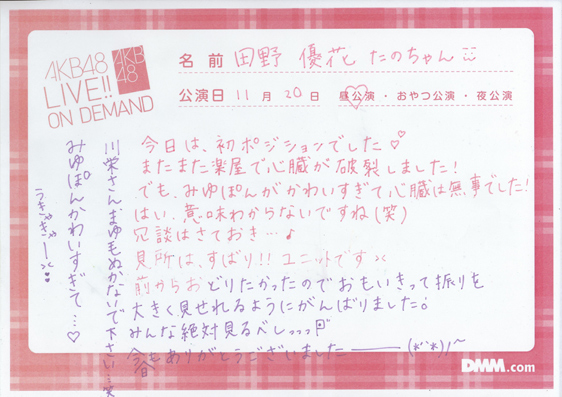 AKB48
LIVE!!
ON DEMAND
AKB
48
名前 田野 優花 たのちゃん
公演日 11月20日 昼公演・おやつ公演・夜公演
今日は、初ポジションでした♡
またまた楽屋で心臓が破裂しました!
でも、みゆぽんがかわいすぎて心臓は無事でした!
はい、意味わからないですね(笑)
冗談はさておき…♪
見所は、ずばり!!ユニットです
前からおどりたかったのでおもいきって振りを
大きく見せれるようにがんばりました!
みんな絶対見るべしっっっ
今日もありがとうございましたー
川栄さんまゆもぬかないで下さい…笑
みゆぽんかわいすぎて…♡
うきゃきゃー
DMM.com